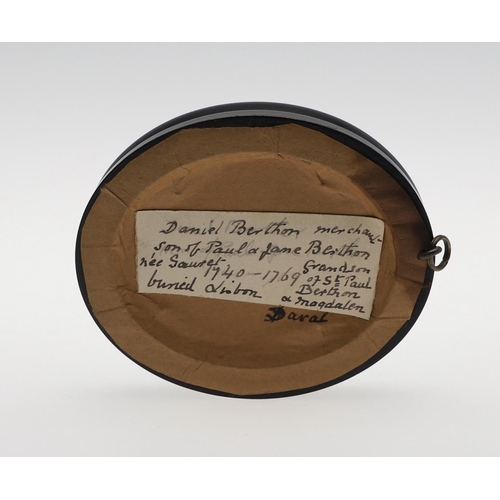 Daniel Berthon merchant
son of Paul & Jane Berthon
née Sauret 1740-1769 Grandson
buried Lisbon of St Paul
Berthon
& Magdalen
Daval